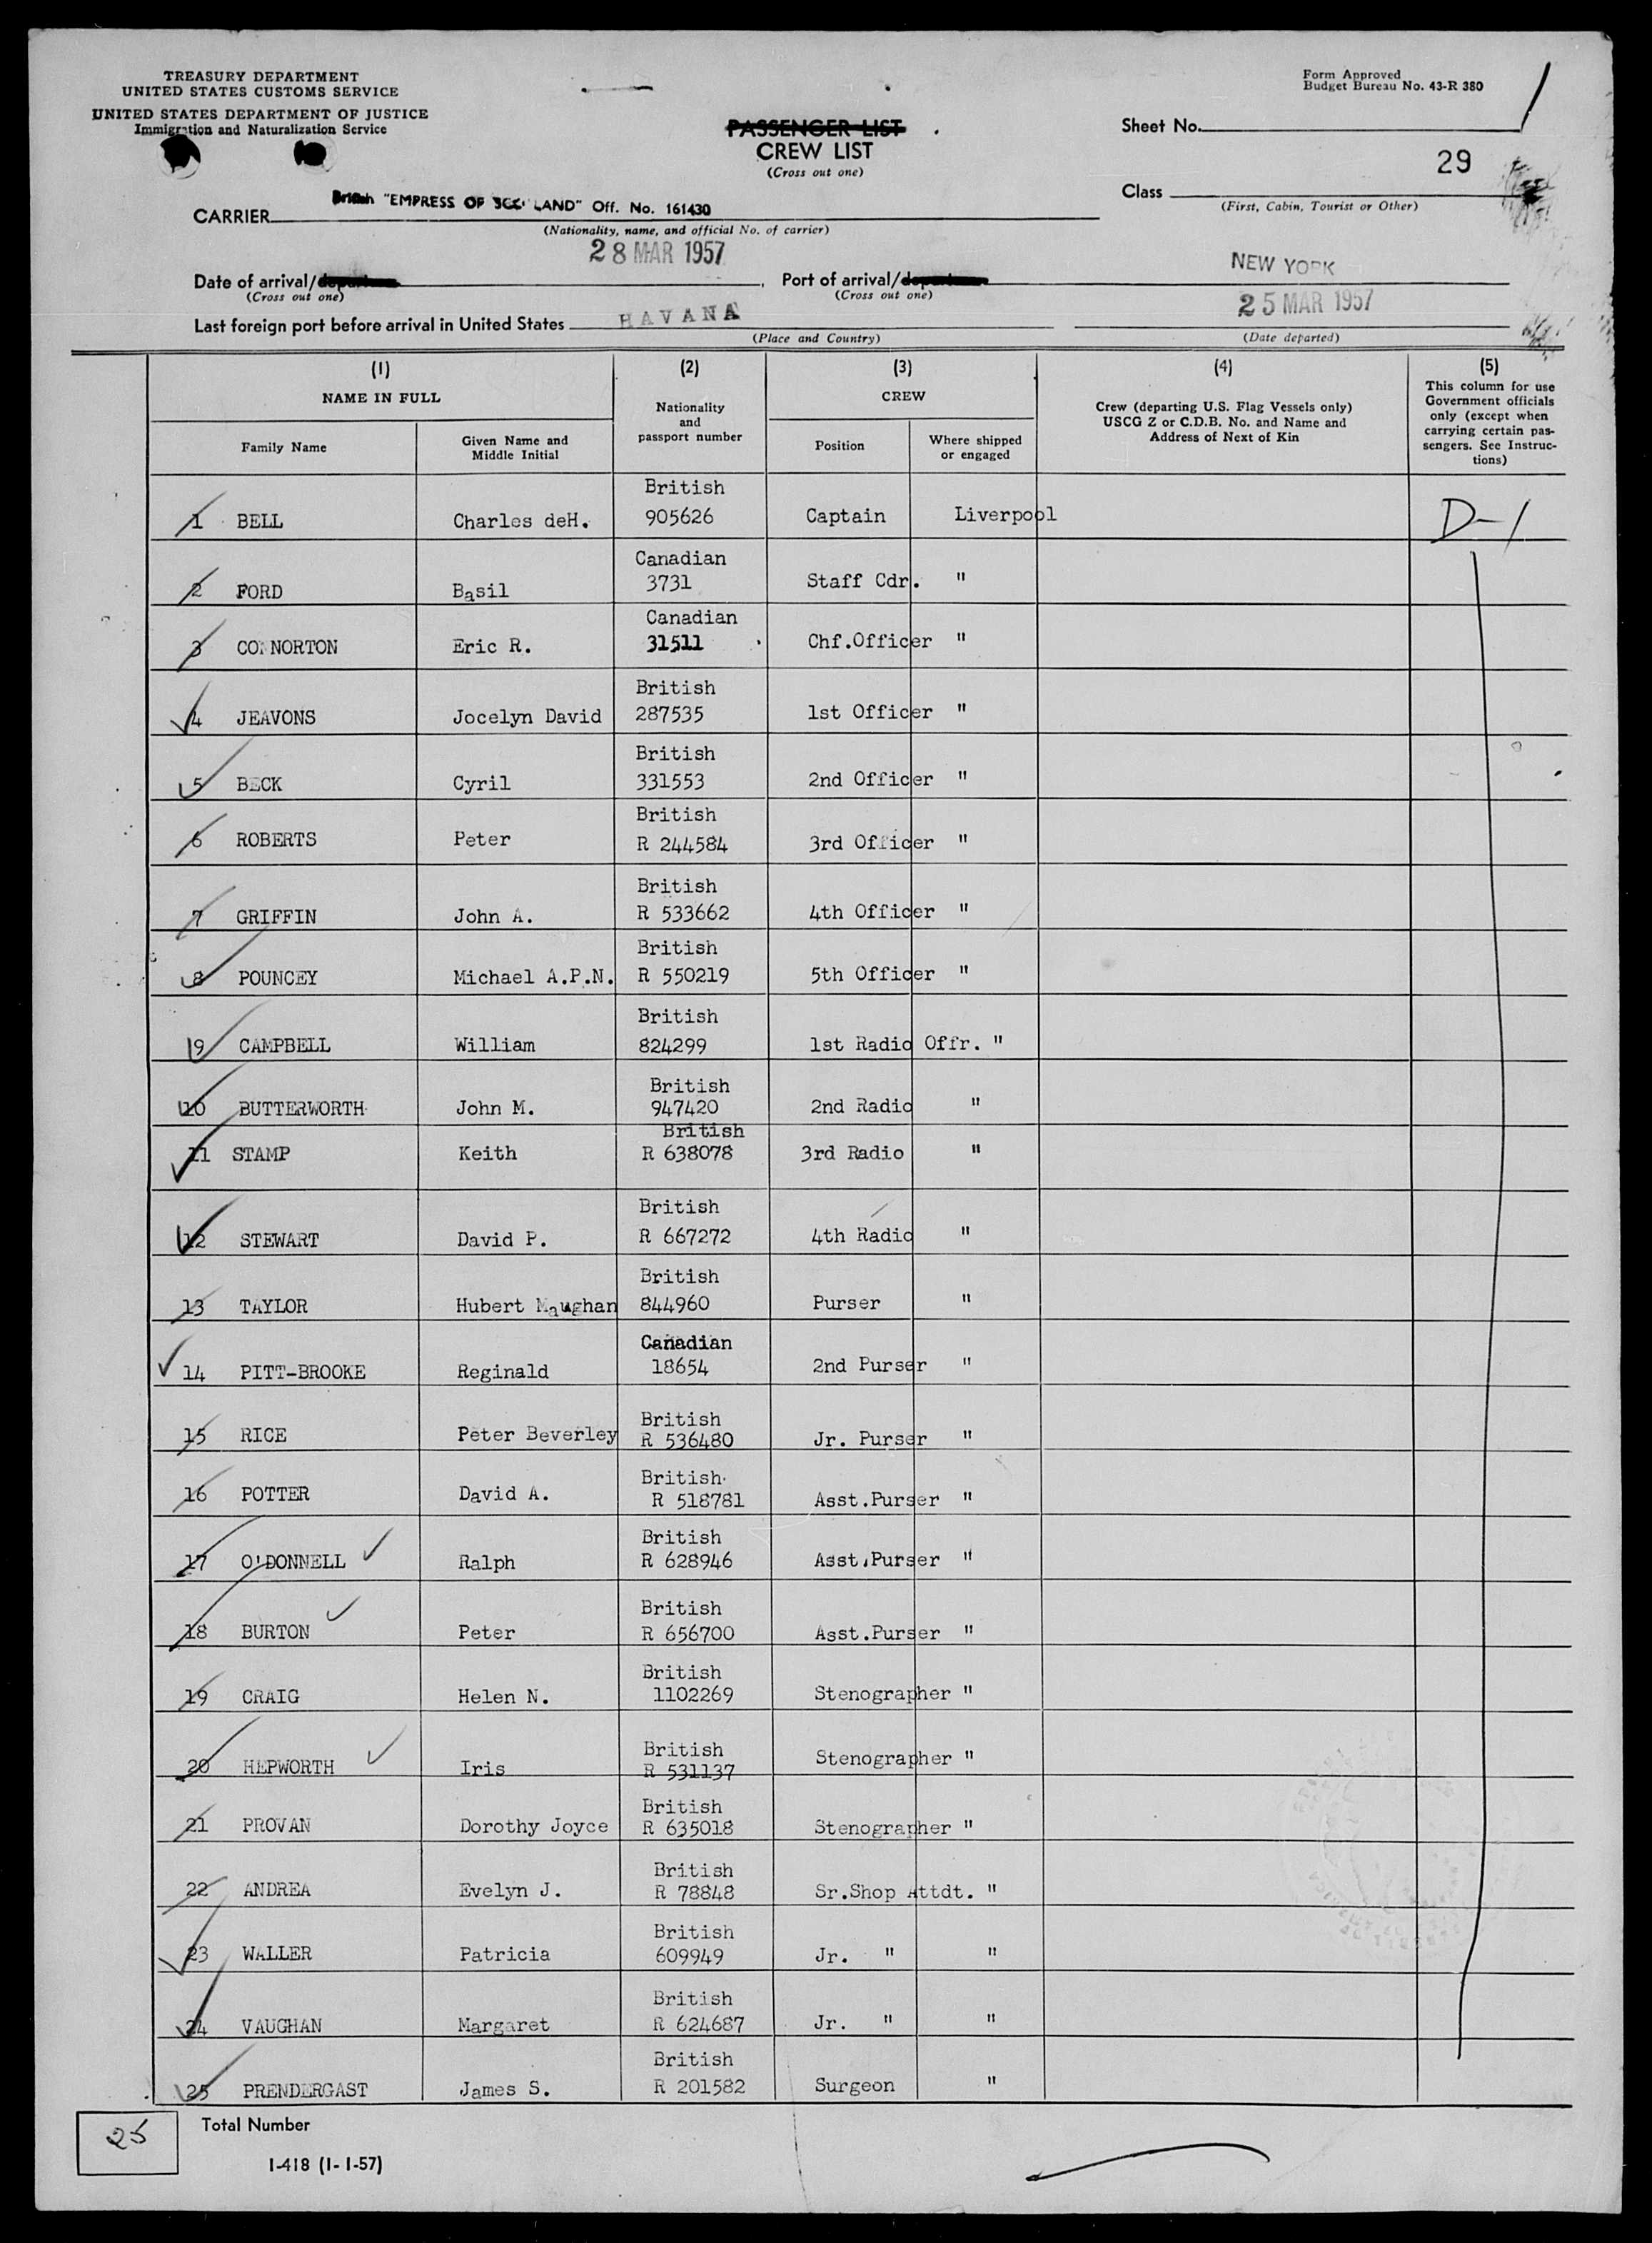 TREASURY DEPARTMENT
UNITED STATES CUSTOMS SERVICE
UNITED STATES DEPARTMENT OF JUSTICE
Immigration and Naturalization Service
Form Approved
Budget Bureau No. 43-R 380
PASSENGER LIST
CREW LIST
(Cross out one)
Sheet No. 1
29
Class
(First, Cabin, Tourist or Other)
CARRIER British "EMPRESS OF SCOTLAND" Off. No. 161430
(Nationality, name, and official No. of carrier)
28 MAR 1957
NEW YORK
Date of arrival/departure
(Cross out one)
Port of arrival/departure
(Cross out one)
25 MAR 1957
Last foreign port before arrival in United States HAVANA
(Place and Country)
(Date departed)
(1) (2) (3) (4) (5)
NAME IN FULL
Family Name
Given Name and
Middle Initial
Nationality
and
passport number
CREW
Position
Where shipped
or engaged
Crew (departing U.S. Flag Vessels only)
USCG Z or C.D.B. No. and Name and
Address of Next of Kin
This column for use
Government officials
only (except when
carrying certain pas-
sengers. See Instruc-
tions)
British
1 BELL Charles deH. 905626 Captain Liverpool D-1
Canadian
2 FORD Basil 3731 Staff Cdr. "
Canadian
3 CONNORTON Eric R. 31511 Chf.Officer "
British
4 JEAVONS Jocelyn David 287535 1st Officer "
British
5 BECK Cyril 331553 2nd Officer "
British
6 ROBERTS Peter R 244584 3rd Officer "
British
7 GRIFFIN John A. R 533662 4th Officer "
British
8 POUNCEY Michael A.P.N. R 550219 5th Officer "
British
9 CAMPBELL William 824299 1st Radio Offr. "
British
10 BUTTERWORTH John M. 947420 2nd Radio "
British
11 STAMP Keith R 638078 3rd Radio "
British
12 STEWART David P. R 667272 4th Radio "
British
13 TAYLOR Hubert Maughan 844960 Purser "
Canadian
14 PITT-BROOKE Reginald 18654 2nd Purser "
British
15 RICE Peter Beverley R 536480 Jr. Purser "
British
16 POTTER David A. R 518781 Asst.Purser "
British
17 O'DONNELL Ralph R 628946 Asst.Purser "
British
18 BURTON Peter R 656700 Asst.Purser "
British
19 CRAIG Helen N. 1102269 Stenographer "
British
20 HEPWORTH Iris R 531137 Stenographer "
British
21 PROVAN Dorothy Joyce R 635018 Stenographer "
British
22 ANDREA Evelyn J. R 78848 Sr.Shop Attdt. "
British
23 WALLER Patricia 609949 Jr. " "
British
24 VAUGHAN Margaret R 624687 Jr. " "
British
25 PRENDERGAST James S. R 201582 Surgeon "
25
Total Number
I-418 (1-1-57)